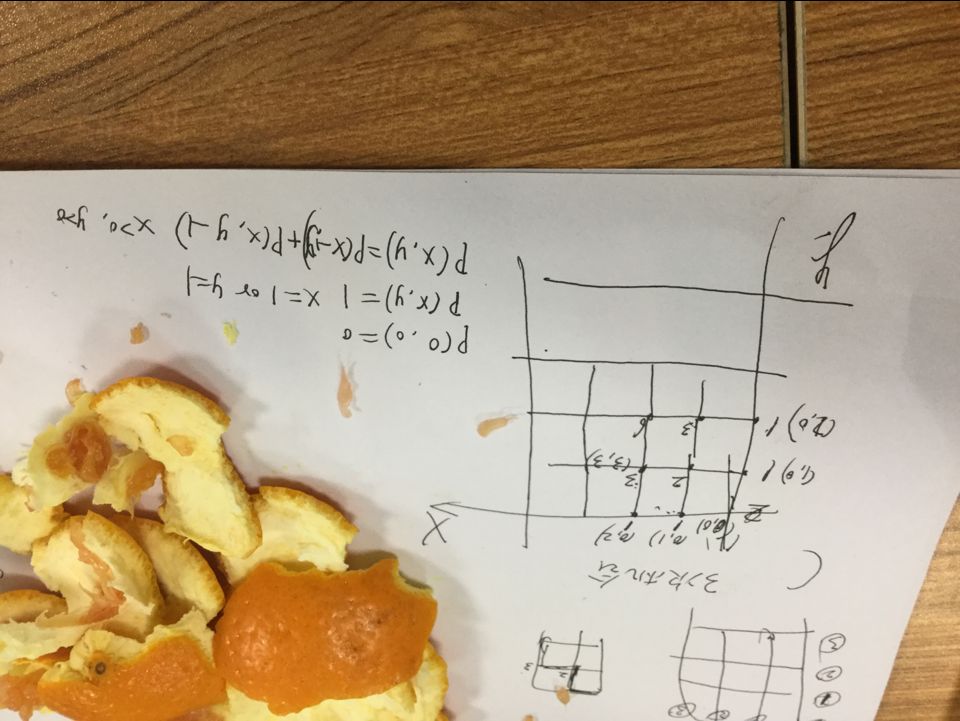 ① ② ③
①
②
③
2 3
3
C 3次机会
X
(0,0) (0,1) (0,2)
(1,0) 1 2 3 (3,3)
(2,0) 1 3 6
y
P(0,0)=0
P(x,y)=1 x=1 or y=1
P(x,y)=P(x-1,y)+P(x,y-1) x>0, y>0